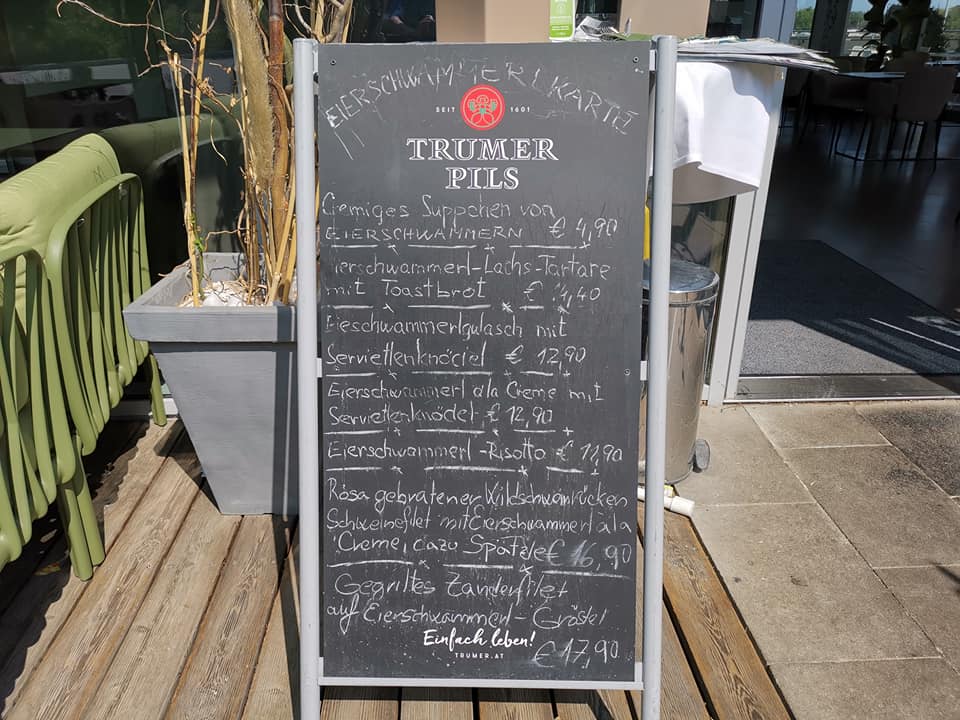 EIERSCHWAMMERLKARTE
SEIT 1601
TRUMER
PILS
Cremiges Süppchen von
EIERSCHWAMMERN € 4,90
Eierschwammerl-Lachs-Tartare
mit Toastbrot €
Eieschwammerlgulasch mit
Serviettenknöciel € 12,90
Eierschwammerl ala Creme mit
Serviettenknödel € 12,90
Eierschwammerl-Risotto € 11,90
Rosa gebratener
Schweinefilet mit Eierschwammerl ala
Creme, dazu Spätzle € 16,90
Gegrilltes Zanderfilet
auf Eierschwammerl-Gröstel
Einfach leben!
TRUMER.AT
€ 17,90